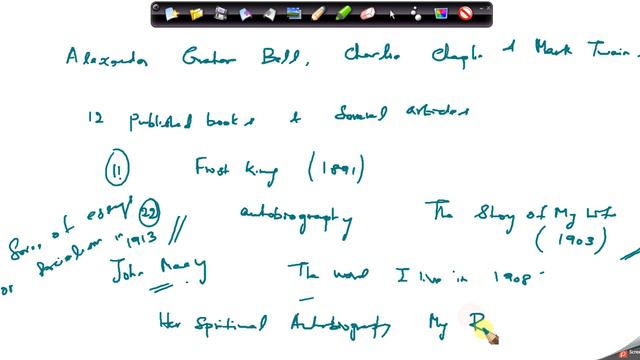 Alexander Graham Bell, Charlie Chaplin & Mark Twain.
12 Published books & Several articles
11 Frost King (1891)
Series of essays 22 autobiography The Story of My Life
or socialism in 1913 (1903)
John Macy The word I live in 1908
Her Spiritual Autobiography My R